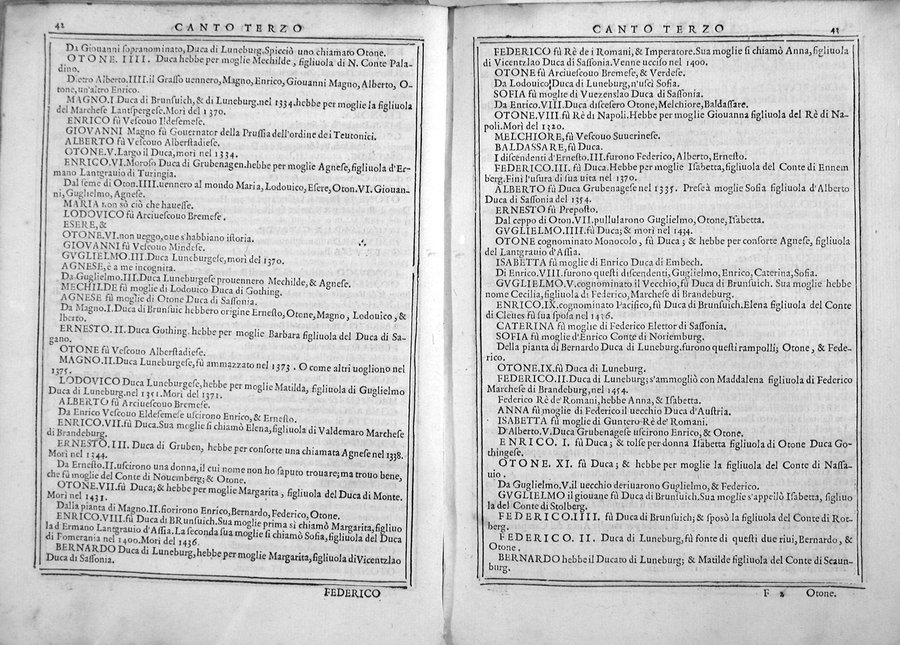 42 CANTO TERZO
Da Giouanni sopranominato, Duca di Luneburg. Spicciò uno chiamato Otone.
OTONE. IIII. Duca hebbe per moglie Mechilde, figliuola di N. Conte Pala-
dino.
Dietro Alberto.IIII.il Grasso uennero, Magno, Enrico, Giouanni Magno, Alberto, O-
tone, un'altro Enrico.
MAGNO.I Duca di Brunsuich, & di Luneburg.nel 1334.hebbe per moglie la figliuola
del Marchese Lantspergese.Mori del 1370.
ENRICO fù Vescouo Ildesemese.
GIOVANNI Magno fù Gouernator della Prussia dell'ordine dei Teutonici.
ALBERTO fù Vescouo Alberstadiese.
OTONE.V.Largo il Duca, mori nel 1334.
ENRICO.VI.Moroso Duca di Grubenagen.hebbe per moglie Agnese, figliuola d'Er-
mano Lantgrauio di Turingia.
Dal seme di Oton.IIII.uennero al mondo Maria, Lodouico, Esere, Oton.VI. Giouan-
ni, Guglielmo, Agnese.
MARIA non sò ciò che hauesse.
LODOVICO fù Arciuescouo Bremese.
ESERE, &
OTONE.VI.non ueggo, que s'habbiano istoria.
GIOVANNI fù Vescouo Mindese.
GVGLIELMO.III.Duca Luneburgese, mori del 1370.
AGNESE, è a me incognita.
Da Guglielmo.III.Duca Luneburgese prouennero Mechilde, & Agnese.
MECHILDE fù moglie di Lodouico Duca di Gothing.
AGNESE fù moglie di Otone Duca di Sassonia.
Da Magno.I.Duca di Brunsuic hebbero origine Ernesto, Otone, Magno, Lodouico, &
Alberto.
ERNESTO. II. Duca Gothing. hebbe per moglie Barbara figliuola del Duca di Sa-
gano.
OTONE fù Vescouo Alberstadiese.
MAGNO.II.Duca Luneburgese, fù ammazzato nel 1373 . O come altri uogliono nel
1375.
LODOVICO Duca Luneburgese, hebbe per moglie Matilda, figliuola di Guglielmo
Duca di Luneburg.nel 1351.Mori del 1371.
ALBERTO fù Arciuescouo Bremese.
Da Enrico Vescouo Eldesemese uscirono Enrico, & Ernesto.
ENRICO.VII.fù Duca.Sua moglie si chiamò Elena, figliuola di Valdemaro Marchese
di Brandeburg.
ERNESTO. III. Duca di Gruben, hebbe per conforte una chiamata Agnese nel 1338.
Mori nel 1344.
Da Ernesto.II.uscirono una donna, il cui nome non ho saputo trouare; ma trouo bene,
che fù moglie del Conte di Nouemberg; & Otone.
OTONE.VII.fù Duca; & hebbe per moglie Margarita, figliuola del Duca di Monte.
Mori nel 1431.
Dalla pianta di Magno.II.fiorirono Enrico, Bernardo, Federico, Otone.
ENRICO.VIII.fù Duca di BRunsuich.Sua moglie prima si chiamò Margarita, figliuo
la d Ermano Lantgrauio d'Assia.La seconda sua moglie si chiamò Sofia, figliuola del Duca
di Fomerania nel 1400.Mori del 1436.
BERNARDO Duca di Luneburg, hebbe per moglie Margarita, figliuola di Vicentzlao
Duca di Sassonia.
FEDERICO
CANTO TERZO 43
FEDERICO fù Rè de i Romani, & Imperatore.Sua moglie si chiamò Anna, figliuola
di Vicentzlao Duca di Sassonia.Venne ucciso nel 1400.
OTONE fù Arciuescouo Bremese, & Verdese.
Da Lodouico, Duca di Luneburg, n'uscì Sofia.
SOFIA fù moglie di Vuezenslao Duca di Sassonia.
Da Enrico.VIII.Duca discesero Otone, Melchiore, Baldassare.
OTONE.VIII.fù Rè di Napoli.Hebbe per moglie Giouanna figliuola del Rè di Na-
poli.Mori del 1320.
MELCHIORE, fù Vescouo Suuerinese.
BALDASSARE, fù Duca.
I discendenti d'Ernesto.III.furono Federico, Alberto, Ernesto.
FEDERICO.III. fù Duca.Hebbe per moglie Isabetta, figliuola del Conte di Ennem
berg.Fini l'usura di sua uita nel 1370.
ALBERTO fù Duca Grubenagese nel 1335. Presea moglie Sofia figliuola d'Alberto
Duca di Sassonia del 1354.
ERNESTO fù Preposto.
Dal ceppo di Oton.VII.pullularono Guglielmo, Otone, Isabetta.
GVGLIELMO.IIII.fù Duca; & mori nel 1434.
OTONE cognominato Monocolo, fù Duca; & hebbe per consorte Agnese, figliuola
del Lantgrauio d'Assia.
ISABETTA fù moglie di Enrico Duca di Embech.
Di Enrico.VIII.furono questi discendenti, Guglielmo, Enrico, Caterina, Sofia.
GVGLIELMO.V.cognominato il Vecchio, fù Duca di Brunsuich. Sua moglie hebbe
nome Cecilia, figliuola di Federico, Marchese di Brandeburg.
ENRICO.IX.cognominato Pacifico, fù Duca di Brunsuich.Elena figliuola del Conte
di Cleues fù sua sposa nel 1436.
CATERINA fù moglie di Federico Elettor di Sassonia.
SOFIA fù moglie d'Enrico Conte di Noriemburg.
Della pianta di Bernardo Duca di Luneburg.furono questi rampolli; Otone, & Fede-
rico.
OTONE.IX.fù Duca di Luneburg.
FEDERICO.II.Duca di Luneburg; s'ammogliò con Maddalena figliuola di Federico
Marchese di Brandeburg, nel 1454.
Federico Rè de' Romani, hebbe Anna, & Isabetta.
ANNA fù moglie di Federico il uecchio Duca d'Austria.
ISABETTA fù moglie di Guntero Rè de' Romani.
D'Alberto.V.Duca Grubenagese uscirono Enrico, & Otone.
ENRICO. I. fù Duca; & tolse per donna Isabetta figliuola di Otone Duca Go-
thingese.
OTONE. XI. fù Duca; & hebbe per moglie la figliuola del Conte di Nassa-
uio.
Da Guglielmo.V.il uecchio deriuarono Guglielmo, & Federico.
GVGLIELMO il giouane fù Duca di Brunsuich.Sua moglie s'appellò Isabetta, figliuo
la del Conte di Stolberg.
FEDERICO.IIII. fù Duca di Brunsuich; & sposò la figliuola del Conte di Rot-
berg.
FEDERICO. II. Duca di Luneburg, fù fonte di questi due riui, Bernardo, &
Otone.
BERNARDO hebbe il Ducato di Luneburg; & Matilde figliuola del Conte di Scaun-
burg.
F 2 Otone.